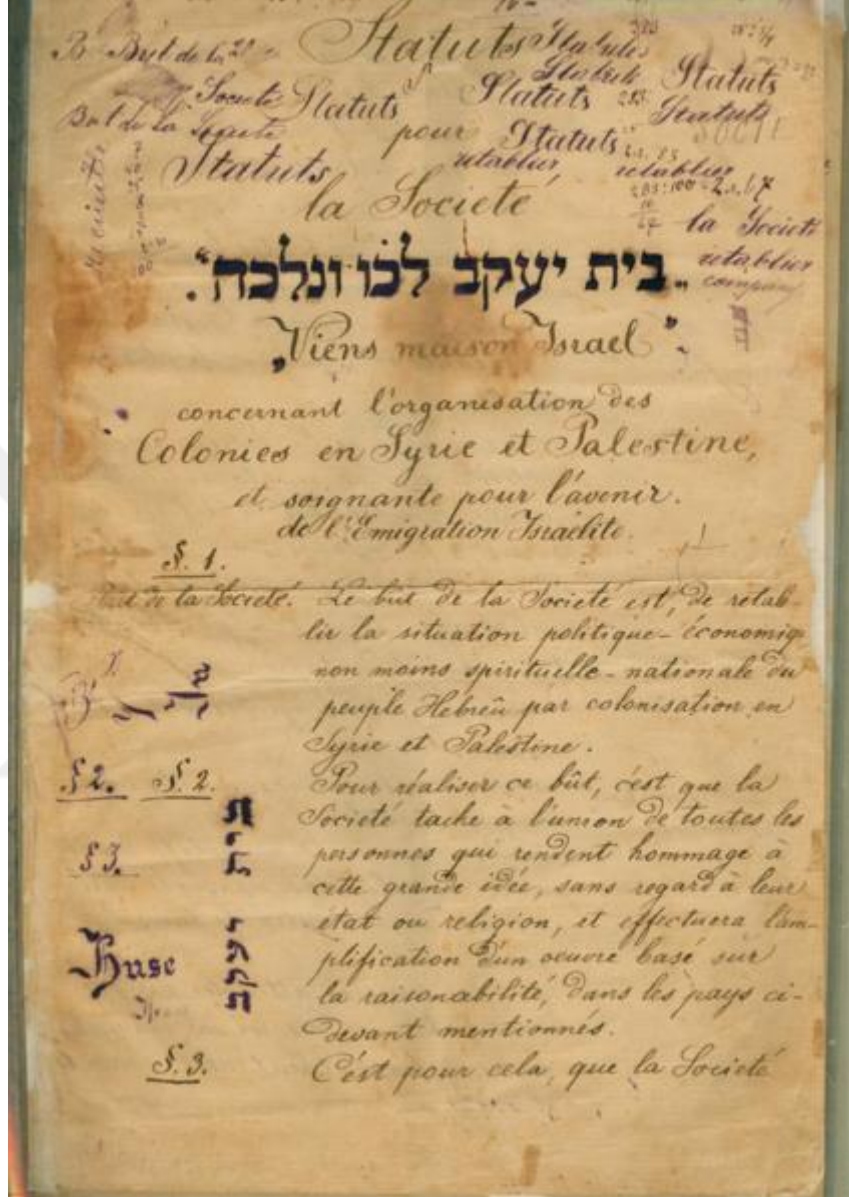 B. But de la
Statuts Statuts
Statuts
Societé Statuts Statuts 283. Statuts
But de la Societé pour Statuts Statuts
Statuts retablier, retablier
283:100=2.
la Societé
la Societé
retablier
company
„בית יעקב לכו ונלכה".
„Viens maison Israel"
concernant l'organisation des
Colonies en Syrie et Palestine,
et soignante pour l'avenir.
de l'Emigration Israélite.
§. 1.
But de la Societé. Le but de la Societé est, de retab-
lir la situation politique-économiq
non moins spirituelle-nationale du
peuple Hebreû par colonisation en
Syrie et Palestine.
§2. §. 2. Pour réaliser ce bût, c'est que la
Societé tache à l'union de toutes les
§3. personnes qui rendent hommage à
cette grande idée, sans regard à leur
état ou religion, et effectuera l'am-
plification d'un oeuvre basé sur
la raisonabilité, dans les pays ci-
devant mentionnés.
בית יעקב
Huse
§. 3. C'est pour cela, que la Societé